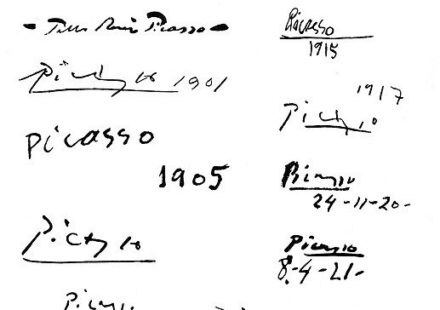 - Pablo Ruiz Picasso -
Picasso 1901
Picasso
1905
Picasso
Picasso
Picasso
1915
1917
Picasso
Picasso
24-11-20-
Picasso
8-4-21-